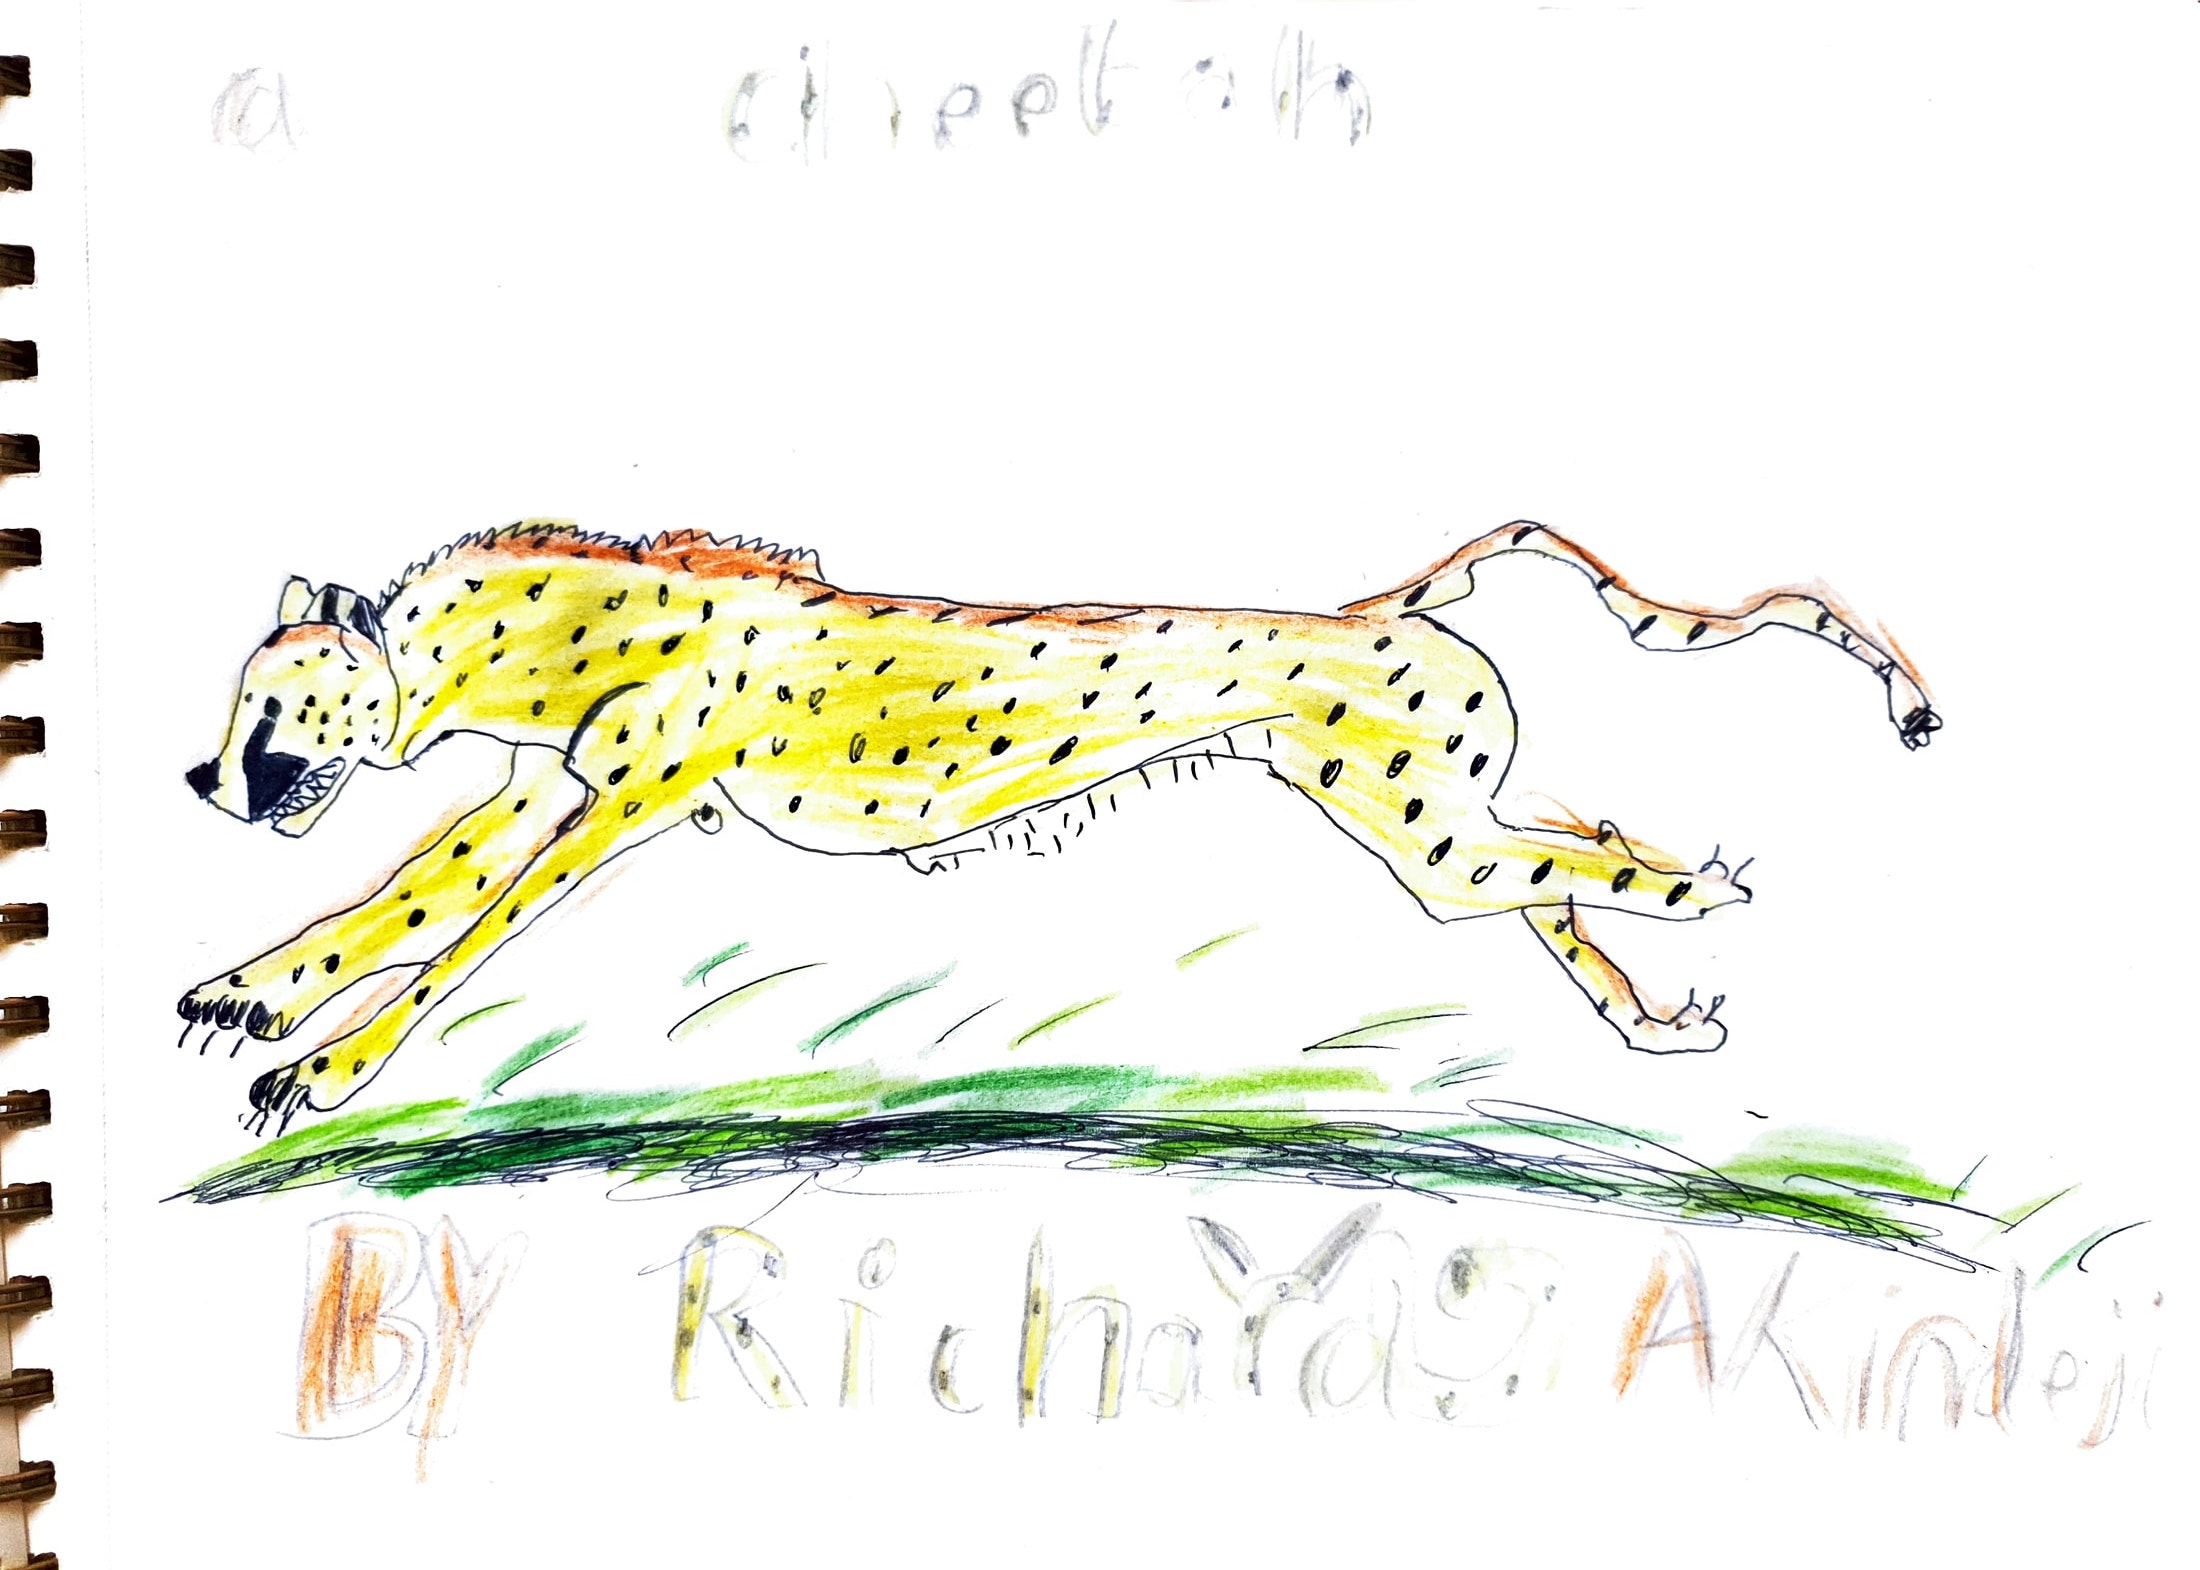 a cheetah
BY Richard Akindeji